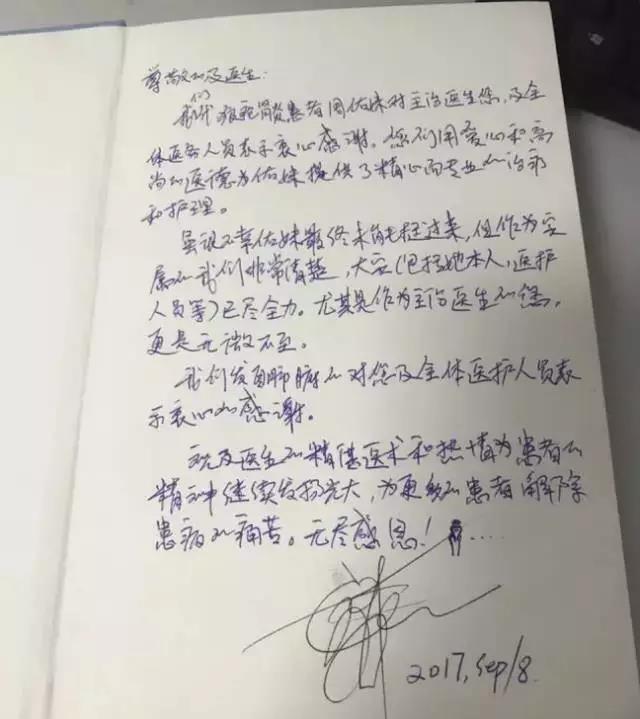 尊敬的及医生：
我们代表视配偶患者周佑妹对主治医生您，及全
体医务人员表示衷心感谢。您们用爱心和高
尚的医德为佑妹提供了精心而专业的治疗
和护理。
虽说不幸佑妹最终未能挺过来，但作为家
属的我们非常清楚，大家（包括她本人，医护
人员等）已尽全力。尤其是作为主治医生的您，
更是无微不至。
我们发自肺腑的对您及全体医护人员表
示衷心的感谢。
祝及医生的精湛医术和热情为患者的
精神继续发扬光大，为更多的患者解除
患病的痛苦。无尽感恩！.....
2017, Sep/8.